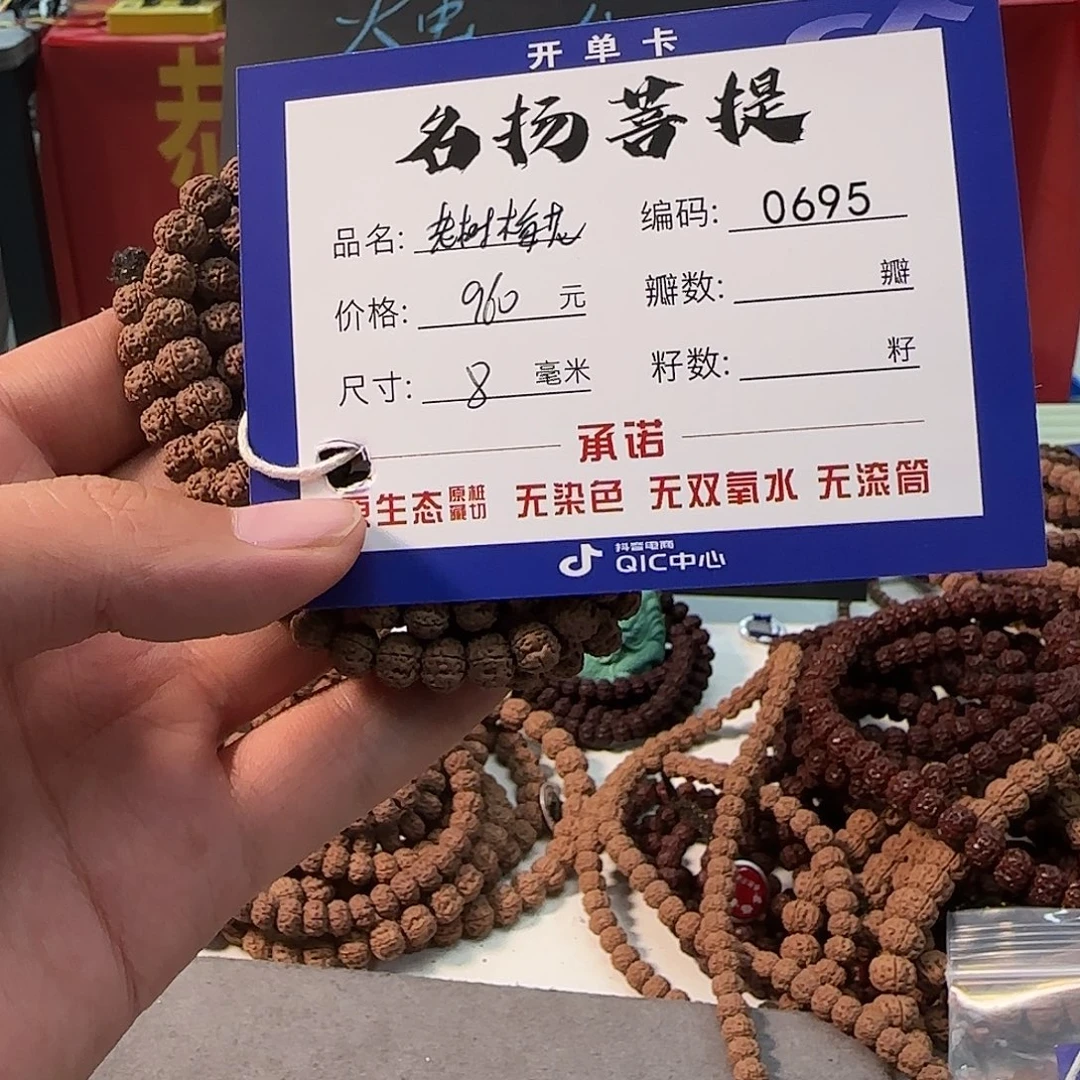 开单卡
名扬菩提
品名: 老树梅花 编码: 0695
价格: 960 元 瓣数: 瓣
尺寸: 8 毫米 籽数: 籽
承诺
原生态 原桩藏切 无染色 无双氧水 无滚筒
抖音电商
QIC中心